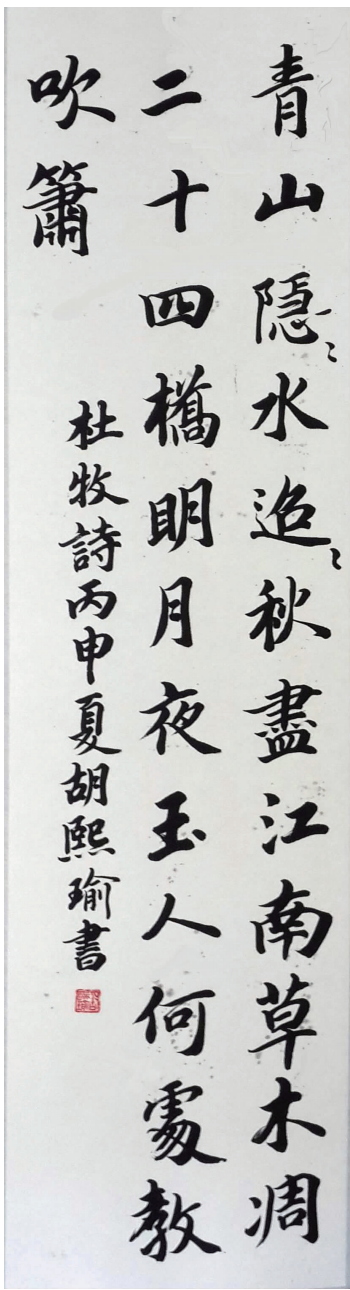 青山隱〻水迢〻秋盡江南草木凋
二十四橋明月夜玉人何處教
吹簫
杜牧詩丙申夏胡熙瑜書